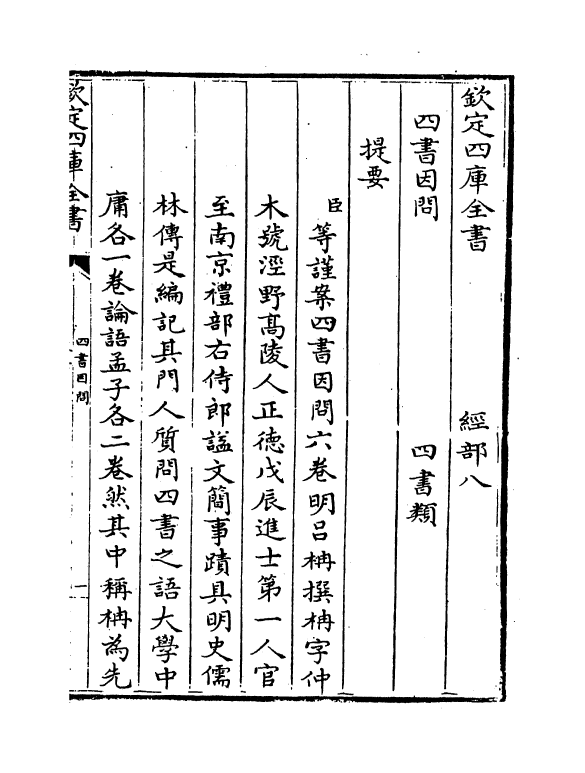 欽定四庫全書　經部八
四書因問　四書類
提要
臣等謹案四書因問六卷明吕柟撰柟字仲
木號涇野髙陵人正徳戊辰進士第一人官
至南京禮部右侍郎諡文簡事蹟具明史儒
林傳是編記其門人質問四書之語大學中
庸各一卷論語孟子各二卷然其中稱柟為先
欽定四庫全書
四書因問
一